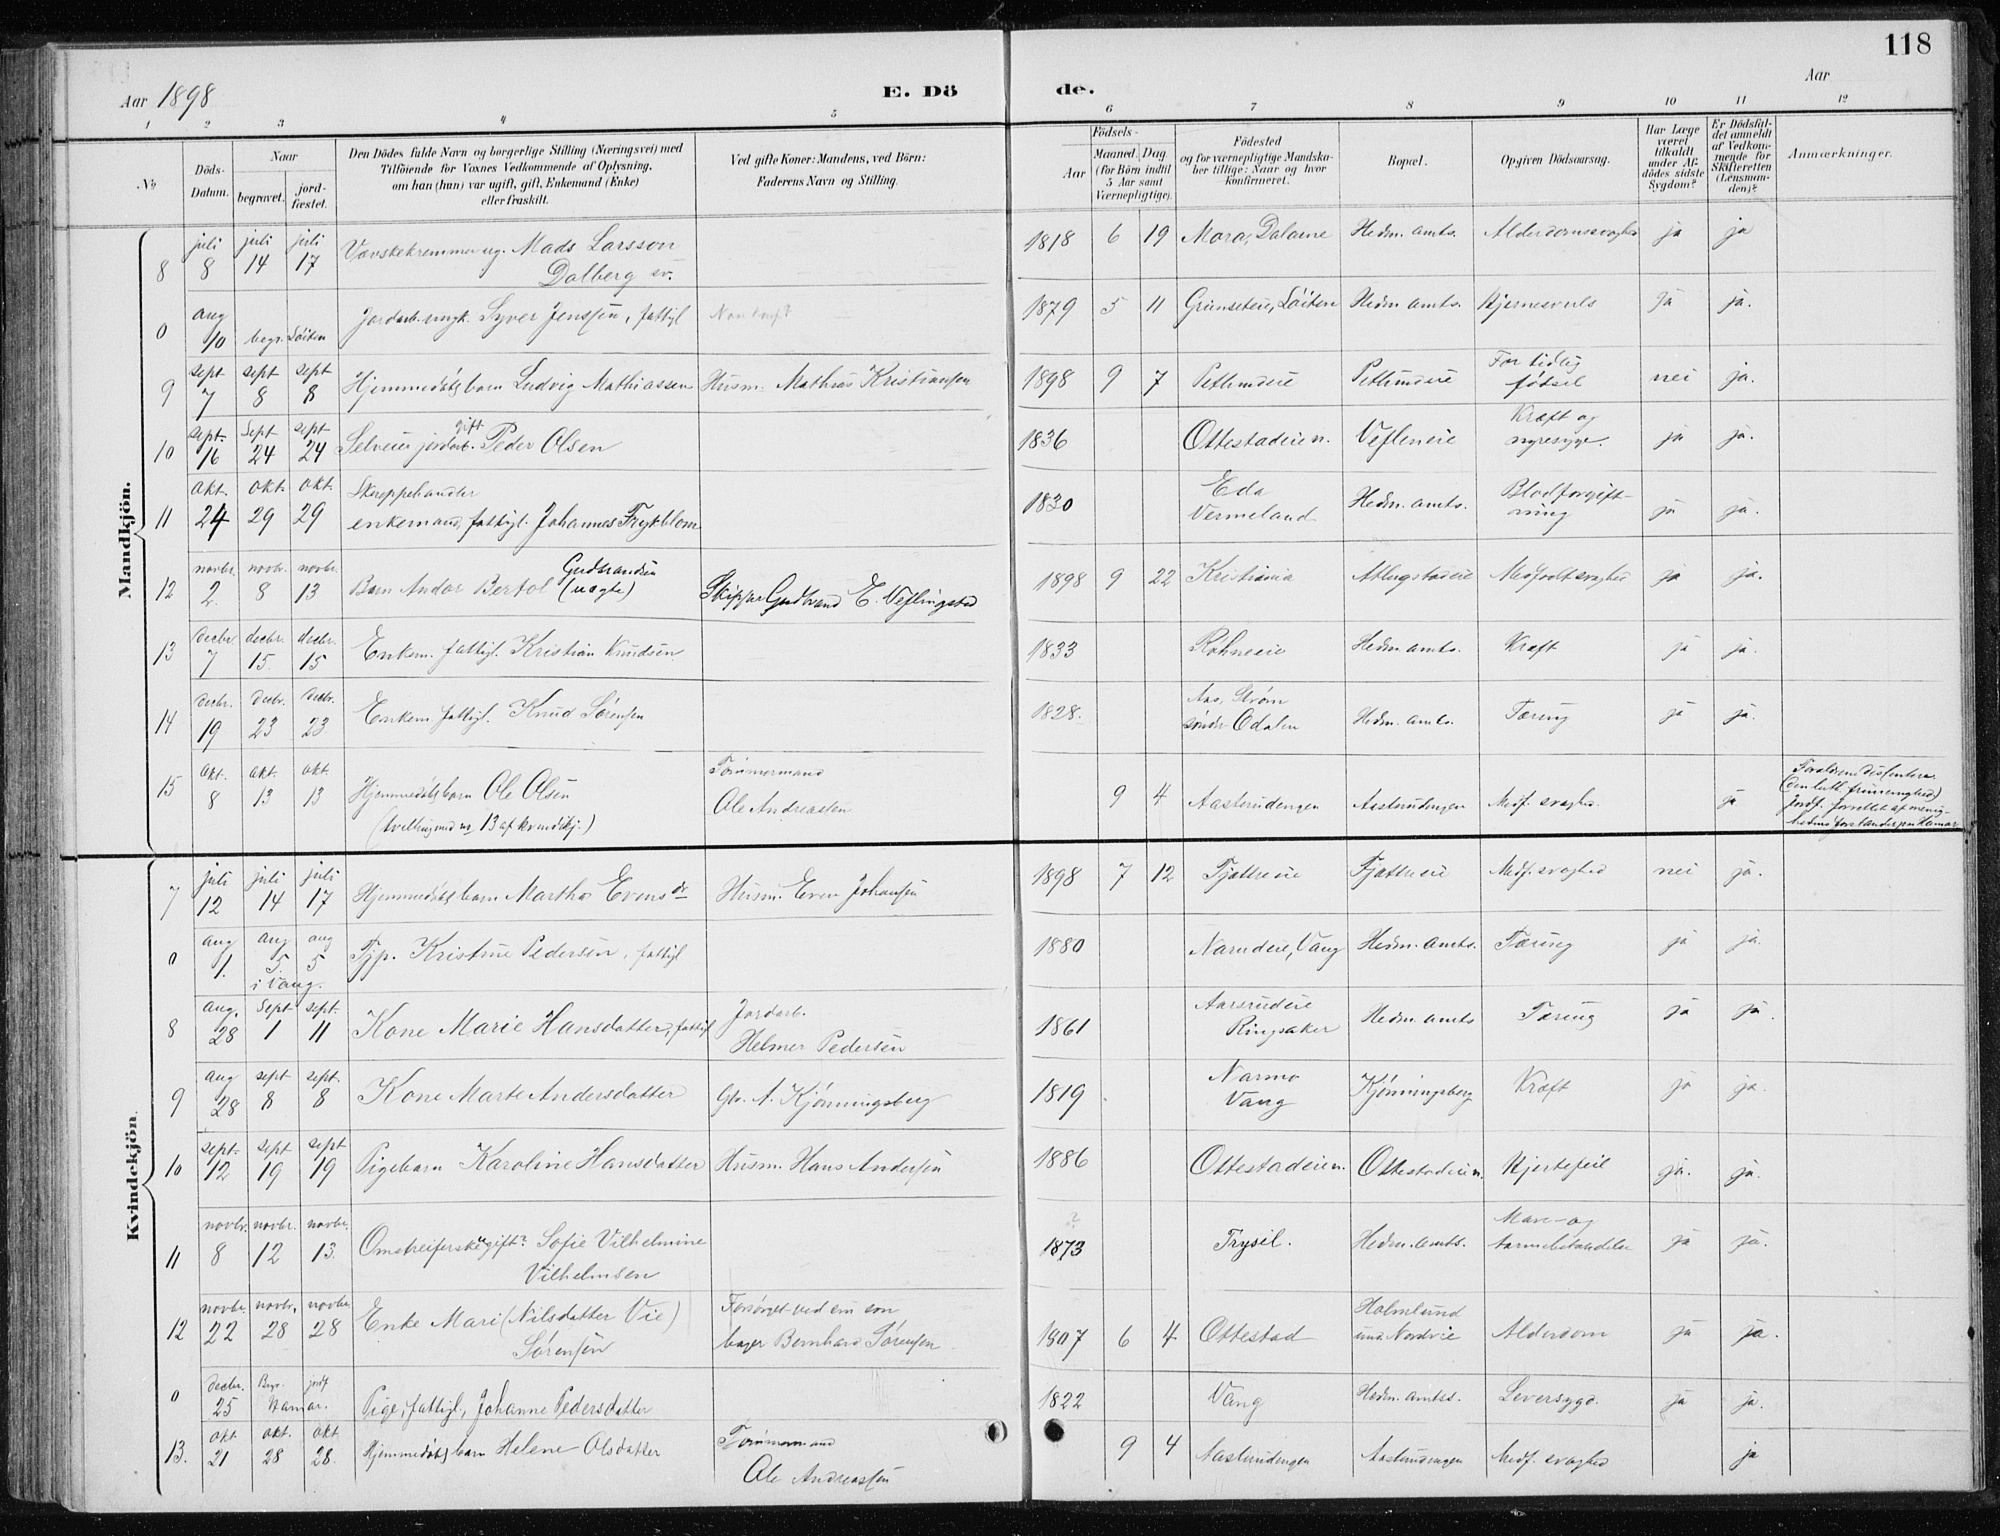 118
Aar 1898
E. Dö
de.
Aar
1 2 3 4 5 6 7 8 9 10 11 12
No
Döds-Datum.
Naar
begravet.
jord-fæstet.
Den Dödes fulde Navn og borgerlige Stilling (Næringsvei) med
Tilföiende for Voxnes Vedkommende af Oplysning,
om han (hun) var ugift, gift, Enkemand (Enke)
eller fraskilt.
Ved gifte Koner: Mandens, ved Börn:
Faderens Navn og Stilling.
Födsels-
Aar
Maaned.
Dag.
(for Börn indtil
5 Aar samt
Værnepligtige).
Födested
og for værnepligtige Mandska-
ber tillige: Naar og hvor
konfirmeret.
Bopæl.
Opgiven Dödsaarsag.
Har Læge
været
tilkaldt
under Af-
dödes sidste
Sygdom?
Er Dödsfal-
det anmeldt
af Vedkom-
mende for
Skifteretten
(Lensman-
den)?
Anmærkninger.
Mandkjön.
8 juli 8 juli 14 juli 17 Mads Larsson Dalberg sv. 1818 6 19 Mora, Dalarne Hedm. amts. Alderdomssvaghed ja ja
0 aug 10 begr. Löiten Syver Jenssen, fattigl 1879 5 11 Grimseteie, Löiten Hedm. amts. Hjernesvuls ja ja.
9 sept 7 sept 8 sept 8 Hjemmedøbt barn Ludvig Mathiassen Husm. Mathias Kristiansen 1898 9 7 For tidlig fødsel nei ja.
10 sept. 16 sept 24 sept. 24 Selveier jordarb. gift Peder Olsen 1836 Ottestadeien. Vefleneie Kræft og nyresyge. ja ja.
11 okt. 24 okt. 29 okt. 29 Skreppehandler enkemand, fattigl. Johannes Frykblom 1830 Eda Vermeland Hedm. amts. Blodforgiftning ja ja.
12 novbr. 2 novbr. 8 novbr. 13 Barn Andor Bertol Gudbrandsen (uægte) Skipper Gudbrand E. Veflingstad 1898 9 22 Kristiania Atlungstadeie Medfødt svaghed ja ja.
13 decbr. 7 decbr. 15. decbr. 15 Enkem. fattigl. Kristian Knudsen 1833 Rohneeie Hedm. amts. Kræft ja ja.
14 decbr. 19 decbr. 23 decbr. 23 Enkem. fattigl. Knud Sørensen 1828. Aas, Strøm søndr Odalen Hedm. amts. Tæring ja ja.
15 okt. 8 okt. 13 okt 13 Hjemmedøbt barn Ole Olsen (tvilling med no 13 af kvindekj.) Tømmermand Ole Andreassen 9 4 Aasterudengen Aasterudengen Medf. svaghed. ja Forældrene dissentere (den luth. frimenighed) Jordf. forrettet af menighedsforstander paa Hamar
Kvindekjön.
7 juli 12 juli 14 juli 17 Hjemmedøbt barn Martha Evensdr Husm. Even Johansen 1898 7 12 Tjættreeie Tjættreeie Medf. svaghed nei ja.
0 aug 1. aug 5. aug 5 i Vang. Tjp. Kristine Pedersen, fattigl 1880 Narudeie, Vang Hedm. amts. Tæring ja ja.
8 aug. 28 sept 1 sept. 11 Kone Marie Hansdatter, fattigl Jordarb. Helmer Pedersen 1861 Aasrudeie Ringsaker Hedm. amts Tæring ja ja.
9 aug 28 sept 8 sept. 8 Kone Marte Andersdatter Gbr. A. Kjønningsberg 1819 Narmo Vang Kjønningsberg Kræft ja ja.
10 sept. 12 sept 19 sept 19 Pigebarn Karoline Hansdatter Husm. Hans Andersen 1886 Ottestadeien. Ottestadeien. Hjertefeil ja. ja.
11 novbr. 8 novbr. 12 novbr. 13. Omstreiferske ugift? Sofie Vilhelmine Vilhelmsen ? 1873 Trysil. Hedm. amts. Mave- og tarmbetændelse ja ja.
12 novbr. 22 novbr. 28 novbr. 28 Enke Mari (Nilsdatter Vie) Sørensen Forsørget ved sin søn bager Bernhard Sørensen 1807 6 4 Ottestad Holmlund und. Nordvie Alderdom ja ja.
0 decbr. 25 Begr. jordf Hamar. Pige, fattigl, Johanne Pedersdatter 1822 Vang Hedm. amts. Leversygd. ja ja.
13. okt 21 okt. 28 okt 28. Hjemmedøbt barn Helene Olsdatter Tømmermand Ole Andreassen 9 4 Aasterudengen Aasterudengen Medf. svaghed ja